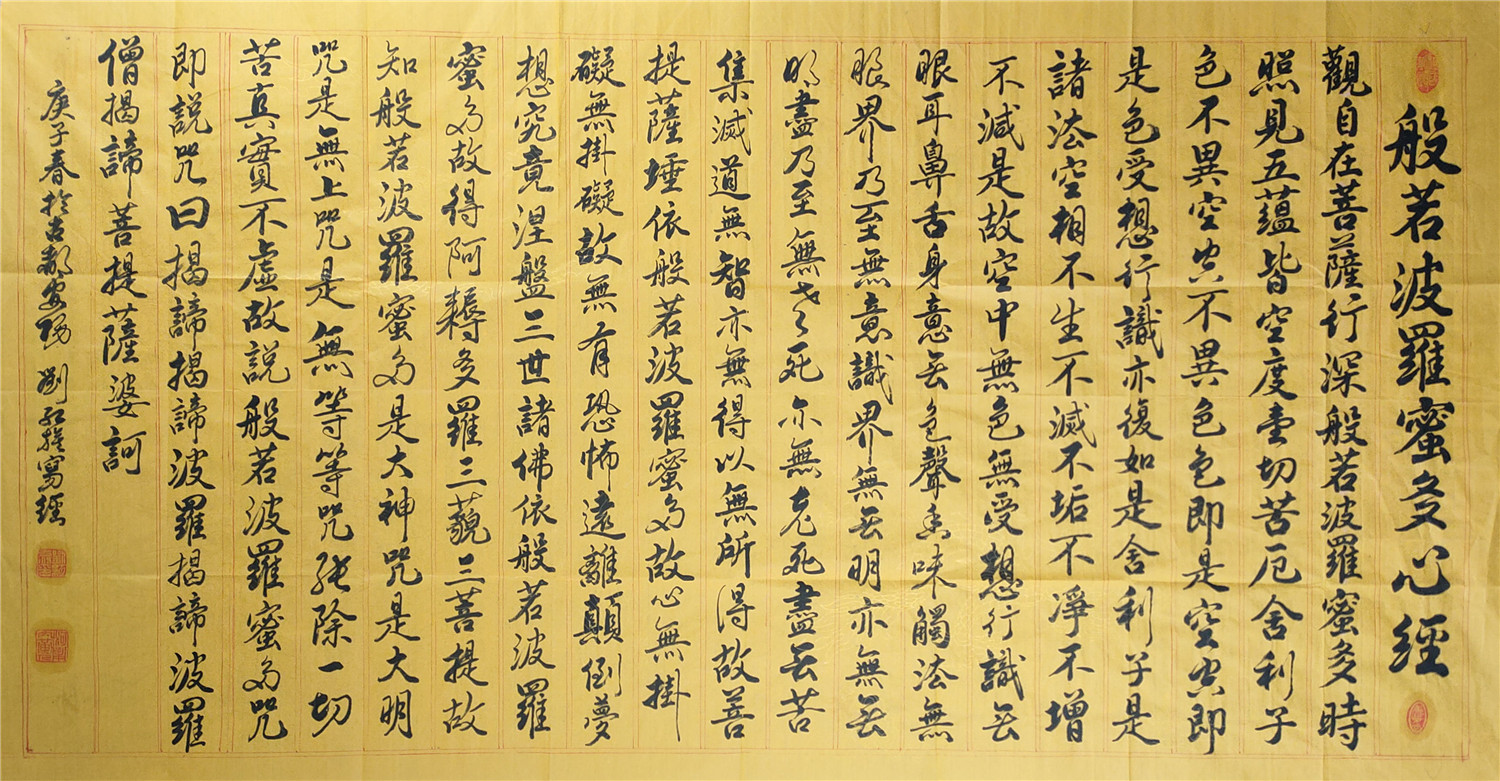 般若波羅蜜多心經
觀自在菩薩行深般若波羅蜜多時
照見五蘊皆空度壹切苦厄舍利子
色不異空空不異色色即是空空即
是色受想行識亦復如是舍利子是
諸法空相不生不滅不垢不淨不增
不減是故空中無色無受想行識无
眼耳鼻舌身意无色聲香味觸法無
眼界乃至無意識界無无明亦無无
明盡乃至無老死亦無老死盡无苦
集滅道無智亦無得以無所得故菩
提薩埵依般若波羅蜜多故心無掛
礙無掛礙故無有恐怖遠離顛倒夢
想究竟涅盤三世諸佛依般若波羅
蜜多故得阿耨多羅三藐三菩提故
知般若波羅蜜多是大神咒是大明
咒是無上咒是無等等咒能除一切
苦真實不虛故說般若波羅蜜多咒
即說咒曰揭諦揭諦波羅揭諦波羅
僧揭諦菩提薩婆訶
庚子春於古都安陽 劉紅旗寫經